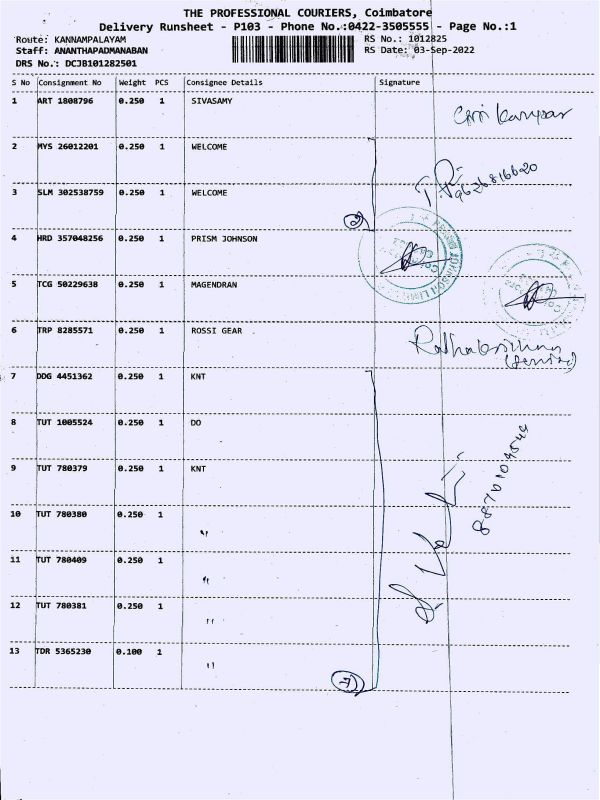 THE PROFESSIONAL COURIERS, Coimbatore
Delivery Runsheet - P103 - Phone No.:0422-3505555 - Page No.:1
Route: KANNAMPALAYAM RS No.: 1012825
Staff: ANANTHAPADMANABAN RS Date: 03-Sep-2022
DRS No.: DCJB101282501
S No Consignment No Weight PCS Consignee Details Signature
1 ART 1808796 0.250 1 SIVASAMY
2 MYS 26012201 0.250 1 WELCOME
9626816620
3 SLM 302538759 0.250 1 WELCOME
2
4 HRD 357048256 0.250 1 PRISM JOHNSON
5 TCG 50229638 0.250 1 MAGENDRAN
6 TRP 8285571 0.250 1 ROSSI GEAR
7 DDG 4451362 0.250 1 KNT
8 TUT 1005524 0.250 1 DO
9 TUT 780379 0.250 1 KNT
10 TUT 780380 0.250 1 "
11 TUT 780409 0.250 1 "
12 TUT 780381 0.250 1 "
13 TDR 5365230 0.100 1 "
7